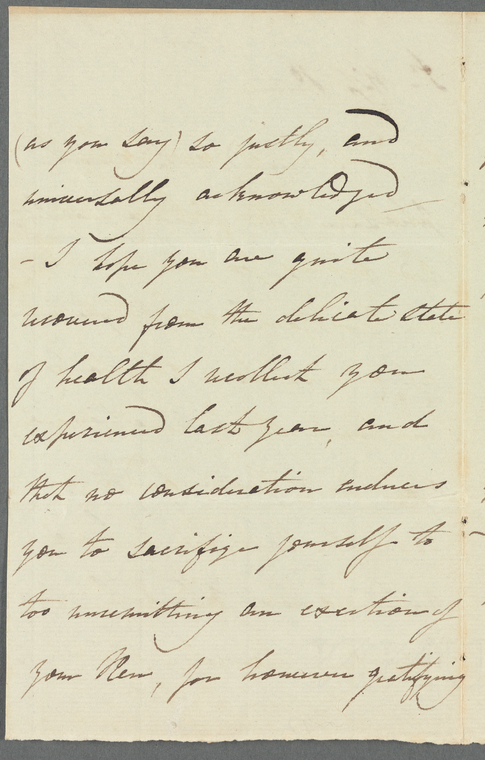 (as you say) so justly, and
universally acknowledged
- I hope you are quite
recovered from the delicate state
of health I recollect you
experienced last year, and
that no consideration induces
you to sacrifize yourself to
too unremitting an exertion of
your Pen, for however gratifying